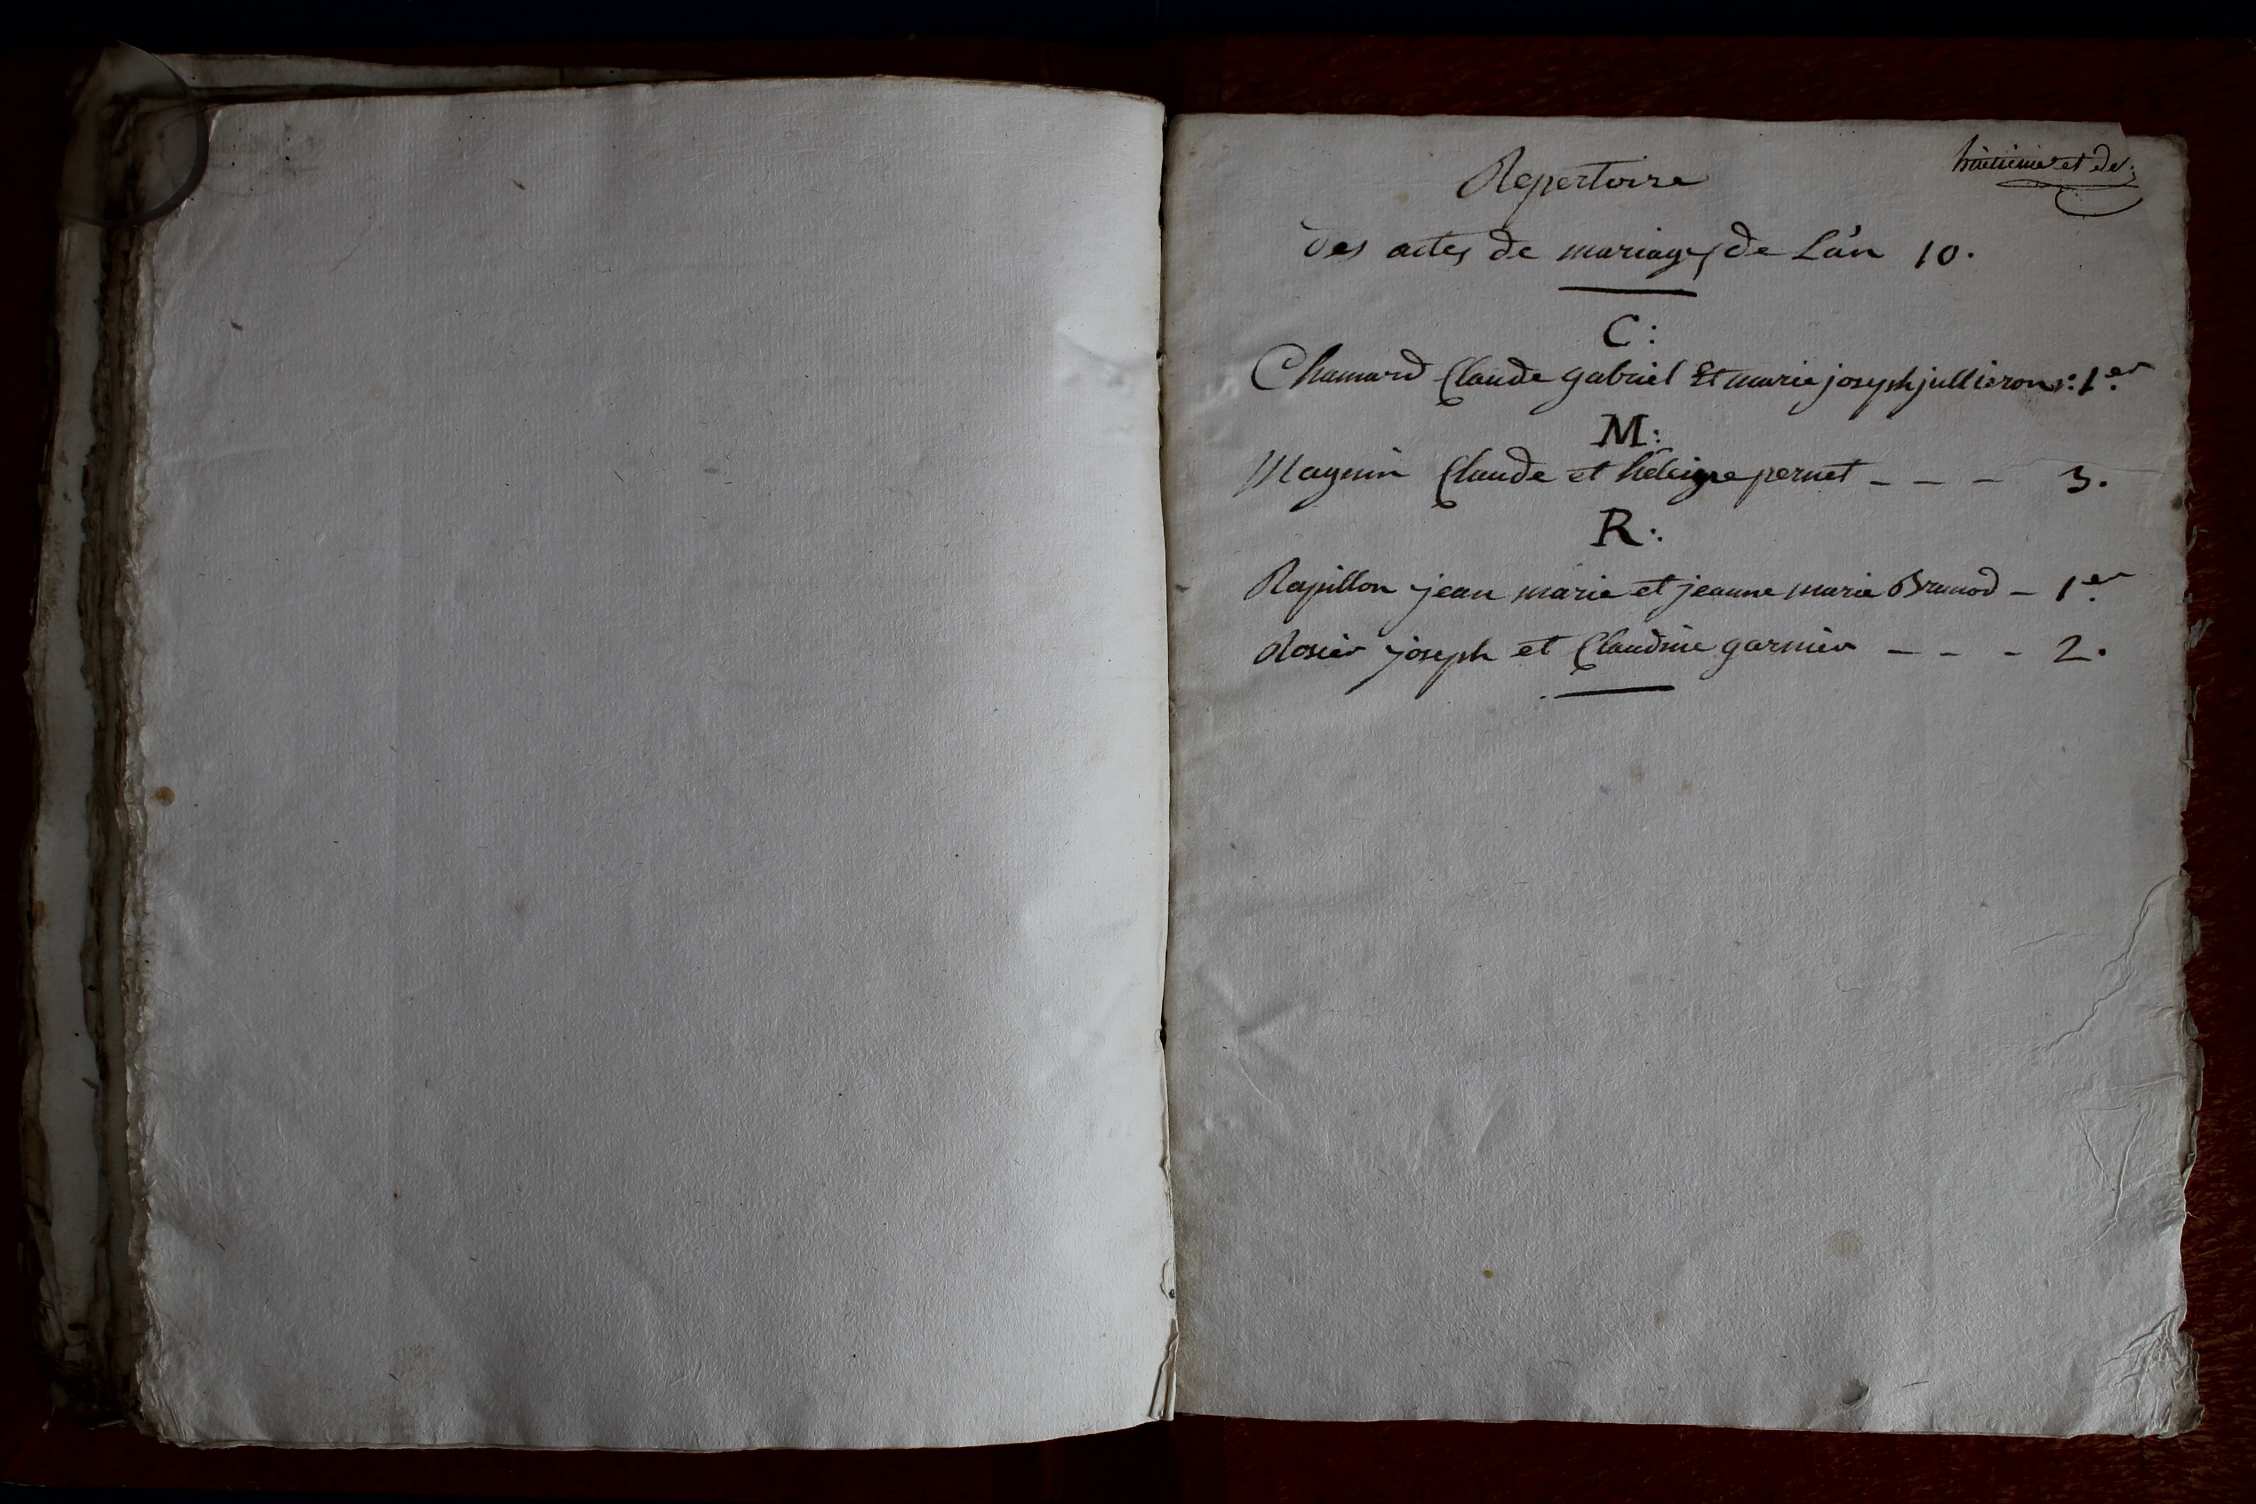 huitième et der.
Repertoire
Des actes de mariages de L'an 10.
C:
Chamard Claude gabriel Et marie joseph jullieron: 1er
M:
Magnin Claude et heleigne pernet - - - 3.
R:
Rapillon jean marie et jeanne marie Brunod - 1er
Rosier joseph et Claudine garnier - - - 2.